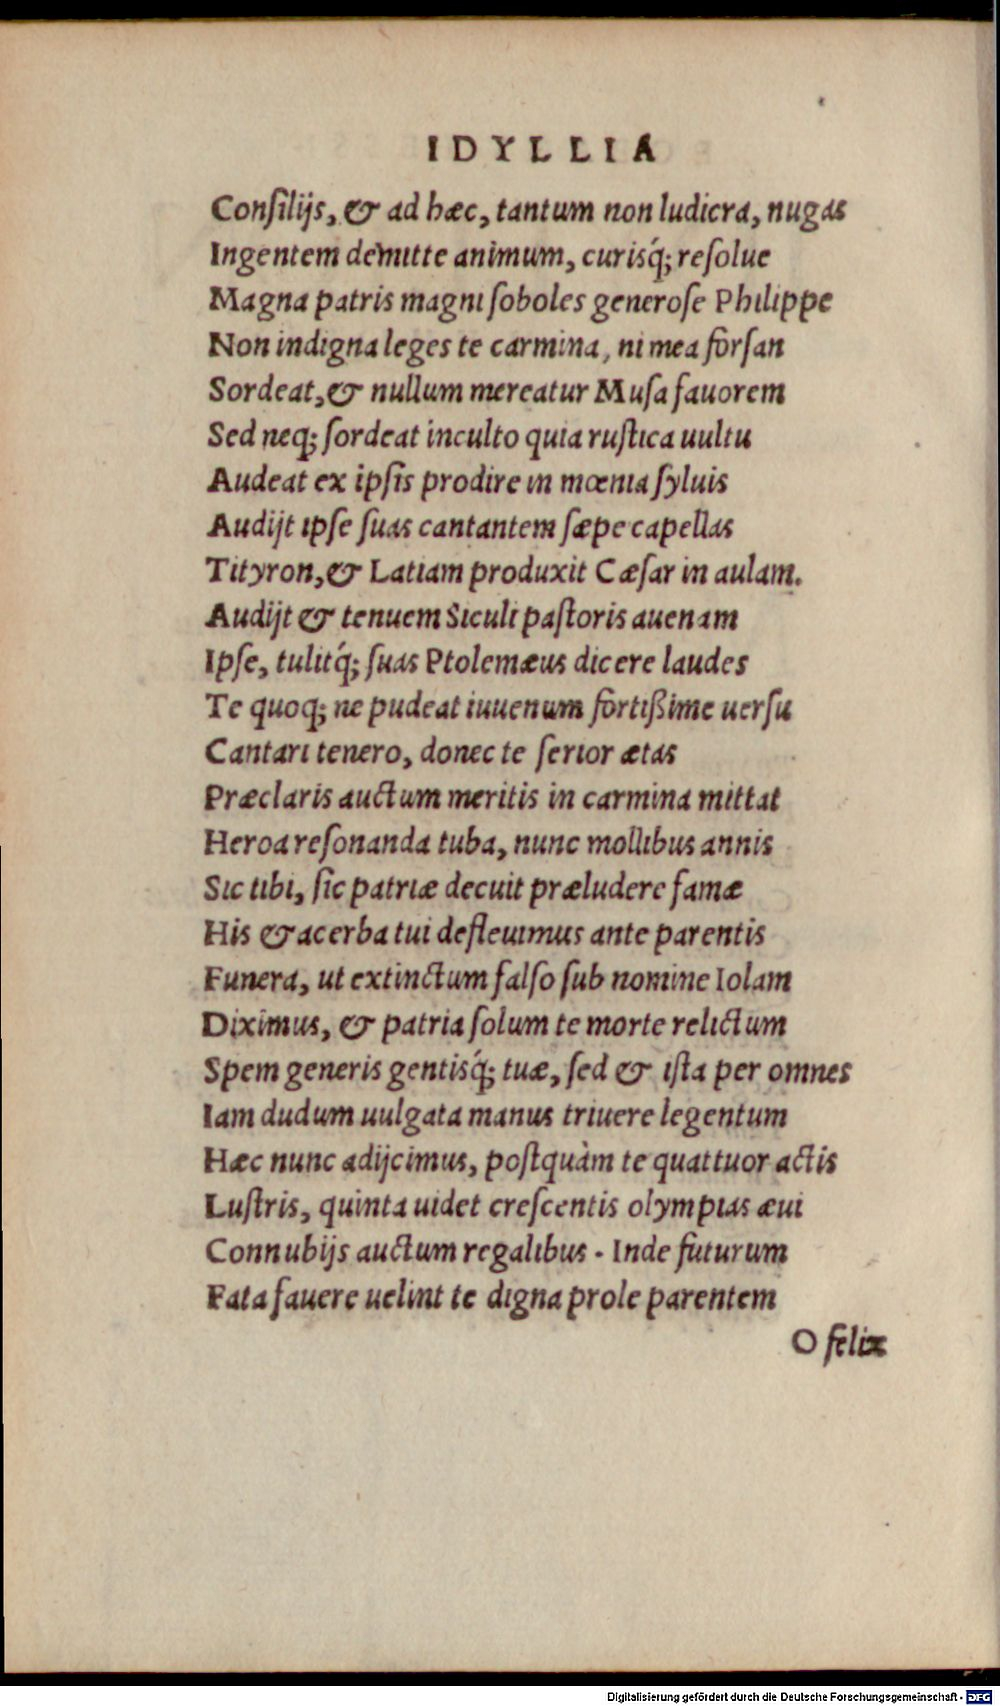 IDYLLIA
Conſilijs, & ad hæc, tantum non ludicra, nugas
Ingentem demitte animum, curisq́; reſolue
Magna patris magni ſoboles generoſe Philippe
Non indigna leges te carmina, ni mea forſan
Sordeat, & nullum mereatur Muſa fauorem
Sed neq; ſordeat inculto quia ruſtica uultu
Audeat ex ipſis prodire in mœnia ſyluis
Audijt ipſe ſuas cantantem ſæpe capellas
Tityron, & Latiam produxit Cæſar in aulam.
Audijt & tenuem Siculi paſtoris auenam
Ipſe, tulitq́; ſuas Ptolemæus dicere laudes
Te quoq; ne pudeat iuuenum fortißime uerſu
Cantari tenero, donec te ſerior ætas
Præclaris auctum meritis in carmina mittat
Heroa reſonanda tuba, nunc mollibus annis
Sic tibi, ſic patriæ decuit præludere famæ
His & acerba tui defleuimus ante parentis
Funera, ut extinctum falſo ſub nomine Iolam
Diximus, & patria ſolum te morte relictum
Spem generis gentisq́; tuæ, ſed & iſta per omnes
Iam dudum uulgata manus triuere legentum
Hæc nunc adijcimus, poſtquàm te quattuor actis
Luſtris, quinta uidet creſcentis olympias æui
Connubijs auctum regalibus. Inde futurum
Fata fauere uelint te digna prole parentem
O felix
Digitalisierung gefördert durch die Deutsche Forschungsgemeinschaft - DFG